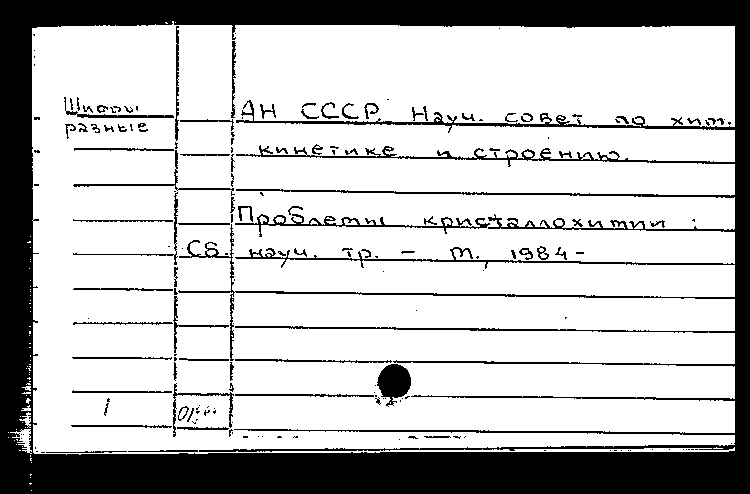 Шифры
разные
АН СССР. Науч. совет по хим.
кинетике и строению.
Проблемы кристаллохимии :
Сб. науч. тр. – М., 1984–
1